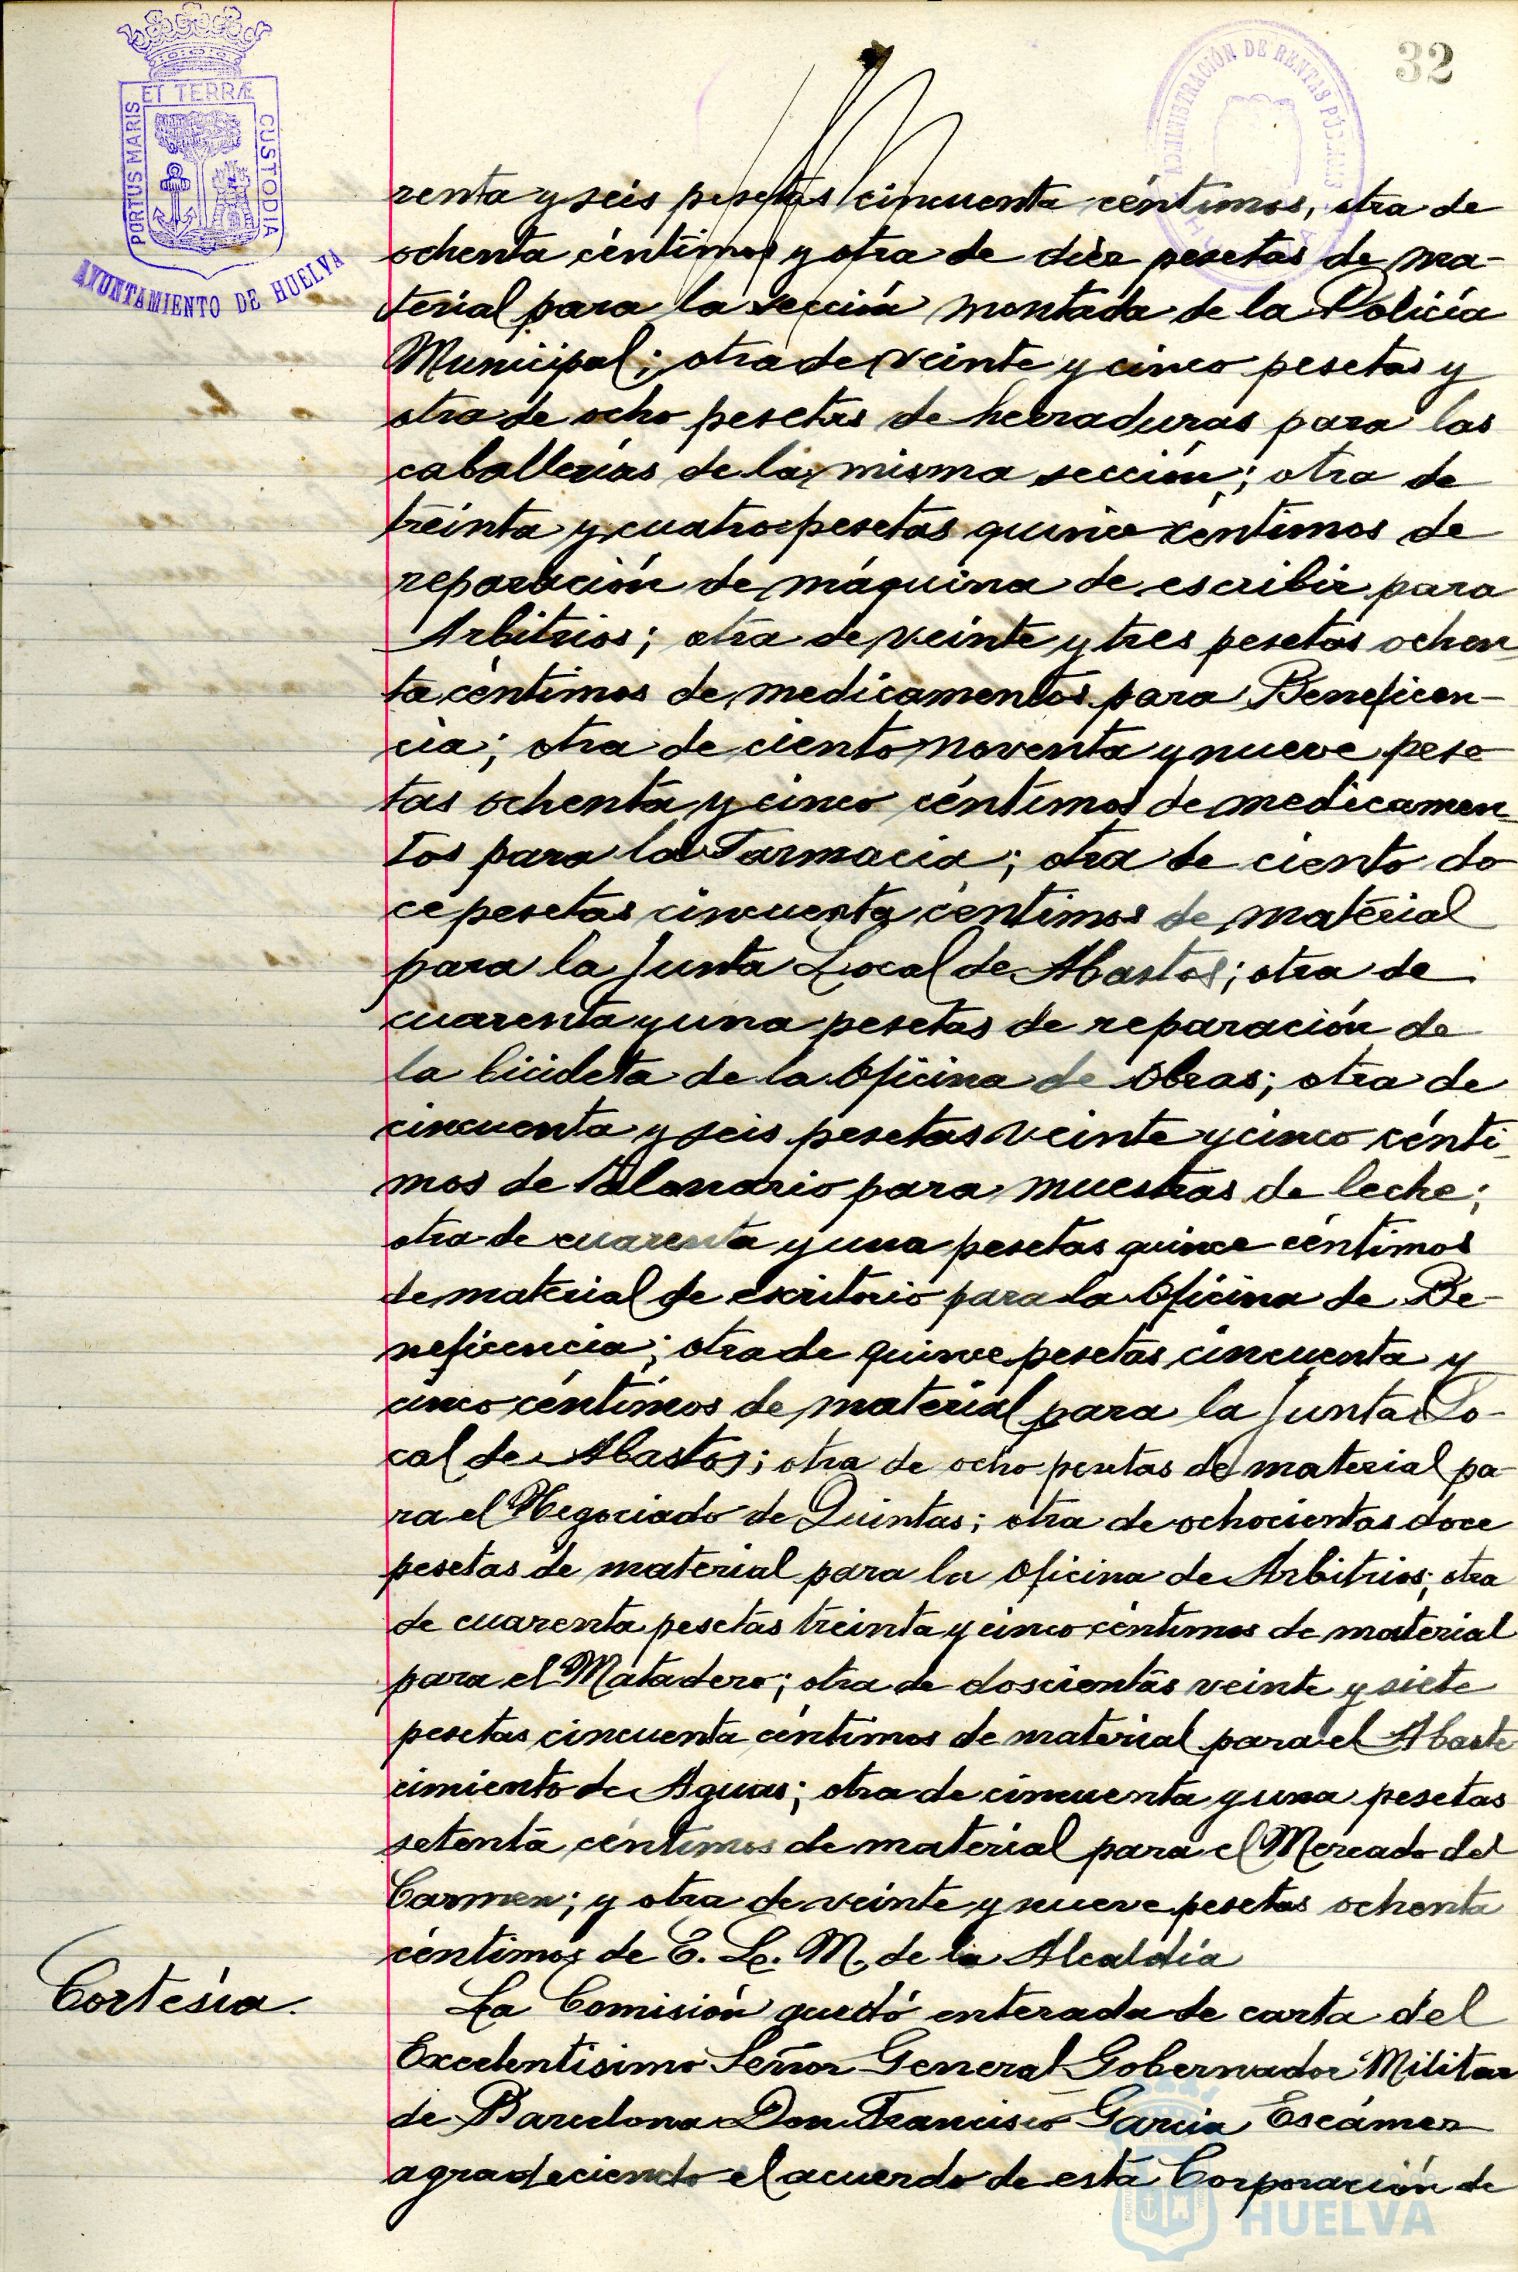 32
ET TERRÆ
PORTUS MARIS
CUSTODIA
AYUNTAMIENTO DE HUELVA
ADMINISTRACIÓN DE RENTAS PÚBLICAS
renta y seis pesetas cincuenta céntimos, otra de
ochenta céntimos y otra de diez pesetas de ma-
terial para la sección montada de la Policía
Municipal; otra de veinte y cinco pesetas y
otra de ocho pesetas de herraduras para las
caballerías de la misma sección; otra de
treinta y cuatro pesetas quince céntimos de
reparación de máquina de escribir para
Arbitrios; otra de veinte y tres pesetas ochen-
ta céntimos de medicamentos para Beneficen-
cia; otra de ciento noventa y nueve pese
tas ochenta y cinco céntimos de medicamen-
tos para la Farmacia; otra de ciento do
ce pesetas cincuenta céntimos de material
para la Junta Local de Abastos; otra de
cuarenta y una pesetas de reparación de
la bicicleta de la Oficina de Obras; otra de
cincuenta y seis pesetas veinte y cinco cénti-
mos de Talonario para muestras de leche;
otra de cuarenta y una pesetas quince céntimos
de material de escritorio para la Oficina de Be-
neficencia; otra de quince pesetas cincuenta y
cinco céntimos de material para la Junta Lo-
cal de Abastos; otra de ocho pesetas de material pa-
ra el Negociado de Quintas; otra de ochocientas doce
pesetas de material para la Oficina de Arbitrios; otra
de cuarenta pesetas treinta y cinco céntimos de material
para el Matadero; otra de doscientas veinte y siete
pesetas cincuenta céntimos de material para el Abaste
cimiento de Aguas; otra de cincuenta y una pesetas
setenta céntimos de material para el Mercado del
Carmen; y otra de veinte y nueve pesetas ochenta
céntimos de E. L. M. de la Alcaldía
Cortesía.
La Comisión quedó enterada de carta del
Excelentísimo Señor General Gobernador Militar
de Barcelona Don Francisco García Escámez
agradeciendo el acuerdo de esta Corporación de
HUELVA